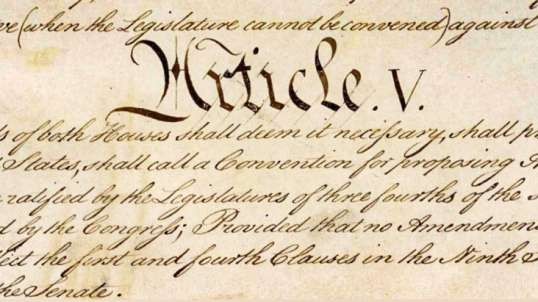 (when the Legislature cannot be convened) against
Article. V.
of both Houses shall deem it necessary, shall
States, shall call a Convention for proposing
ratified by the Legislatures of three fourths of the
by the Congress; Provided that no Amendmen
the first and fourth Clauses in the Ninth
the Senate.